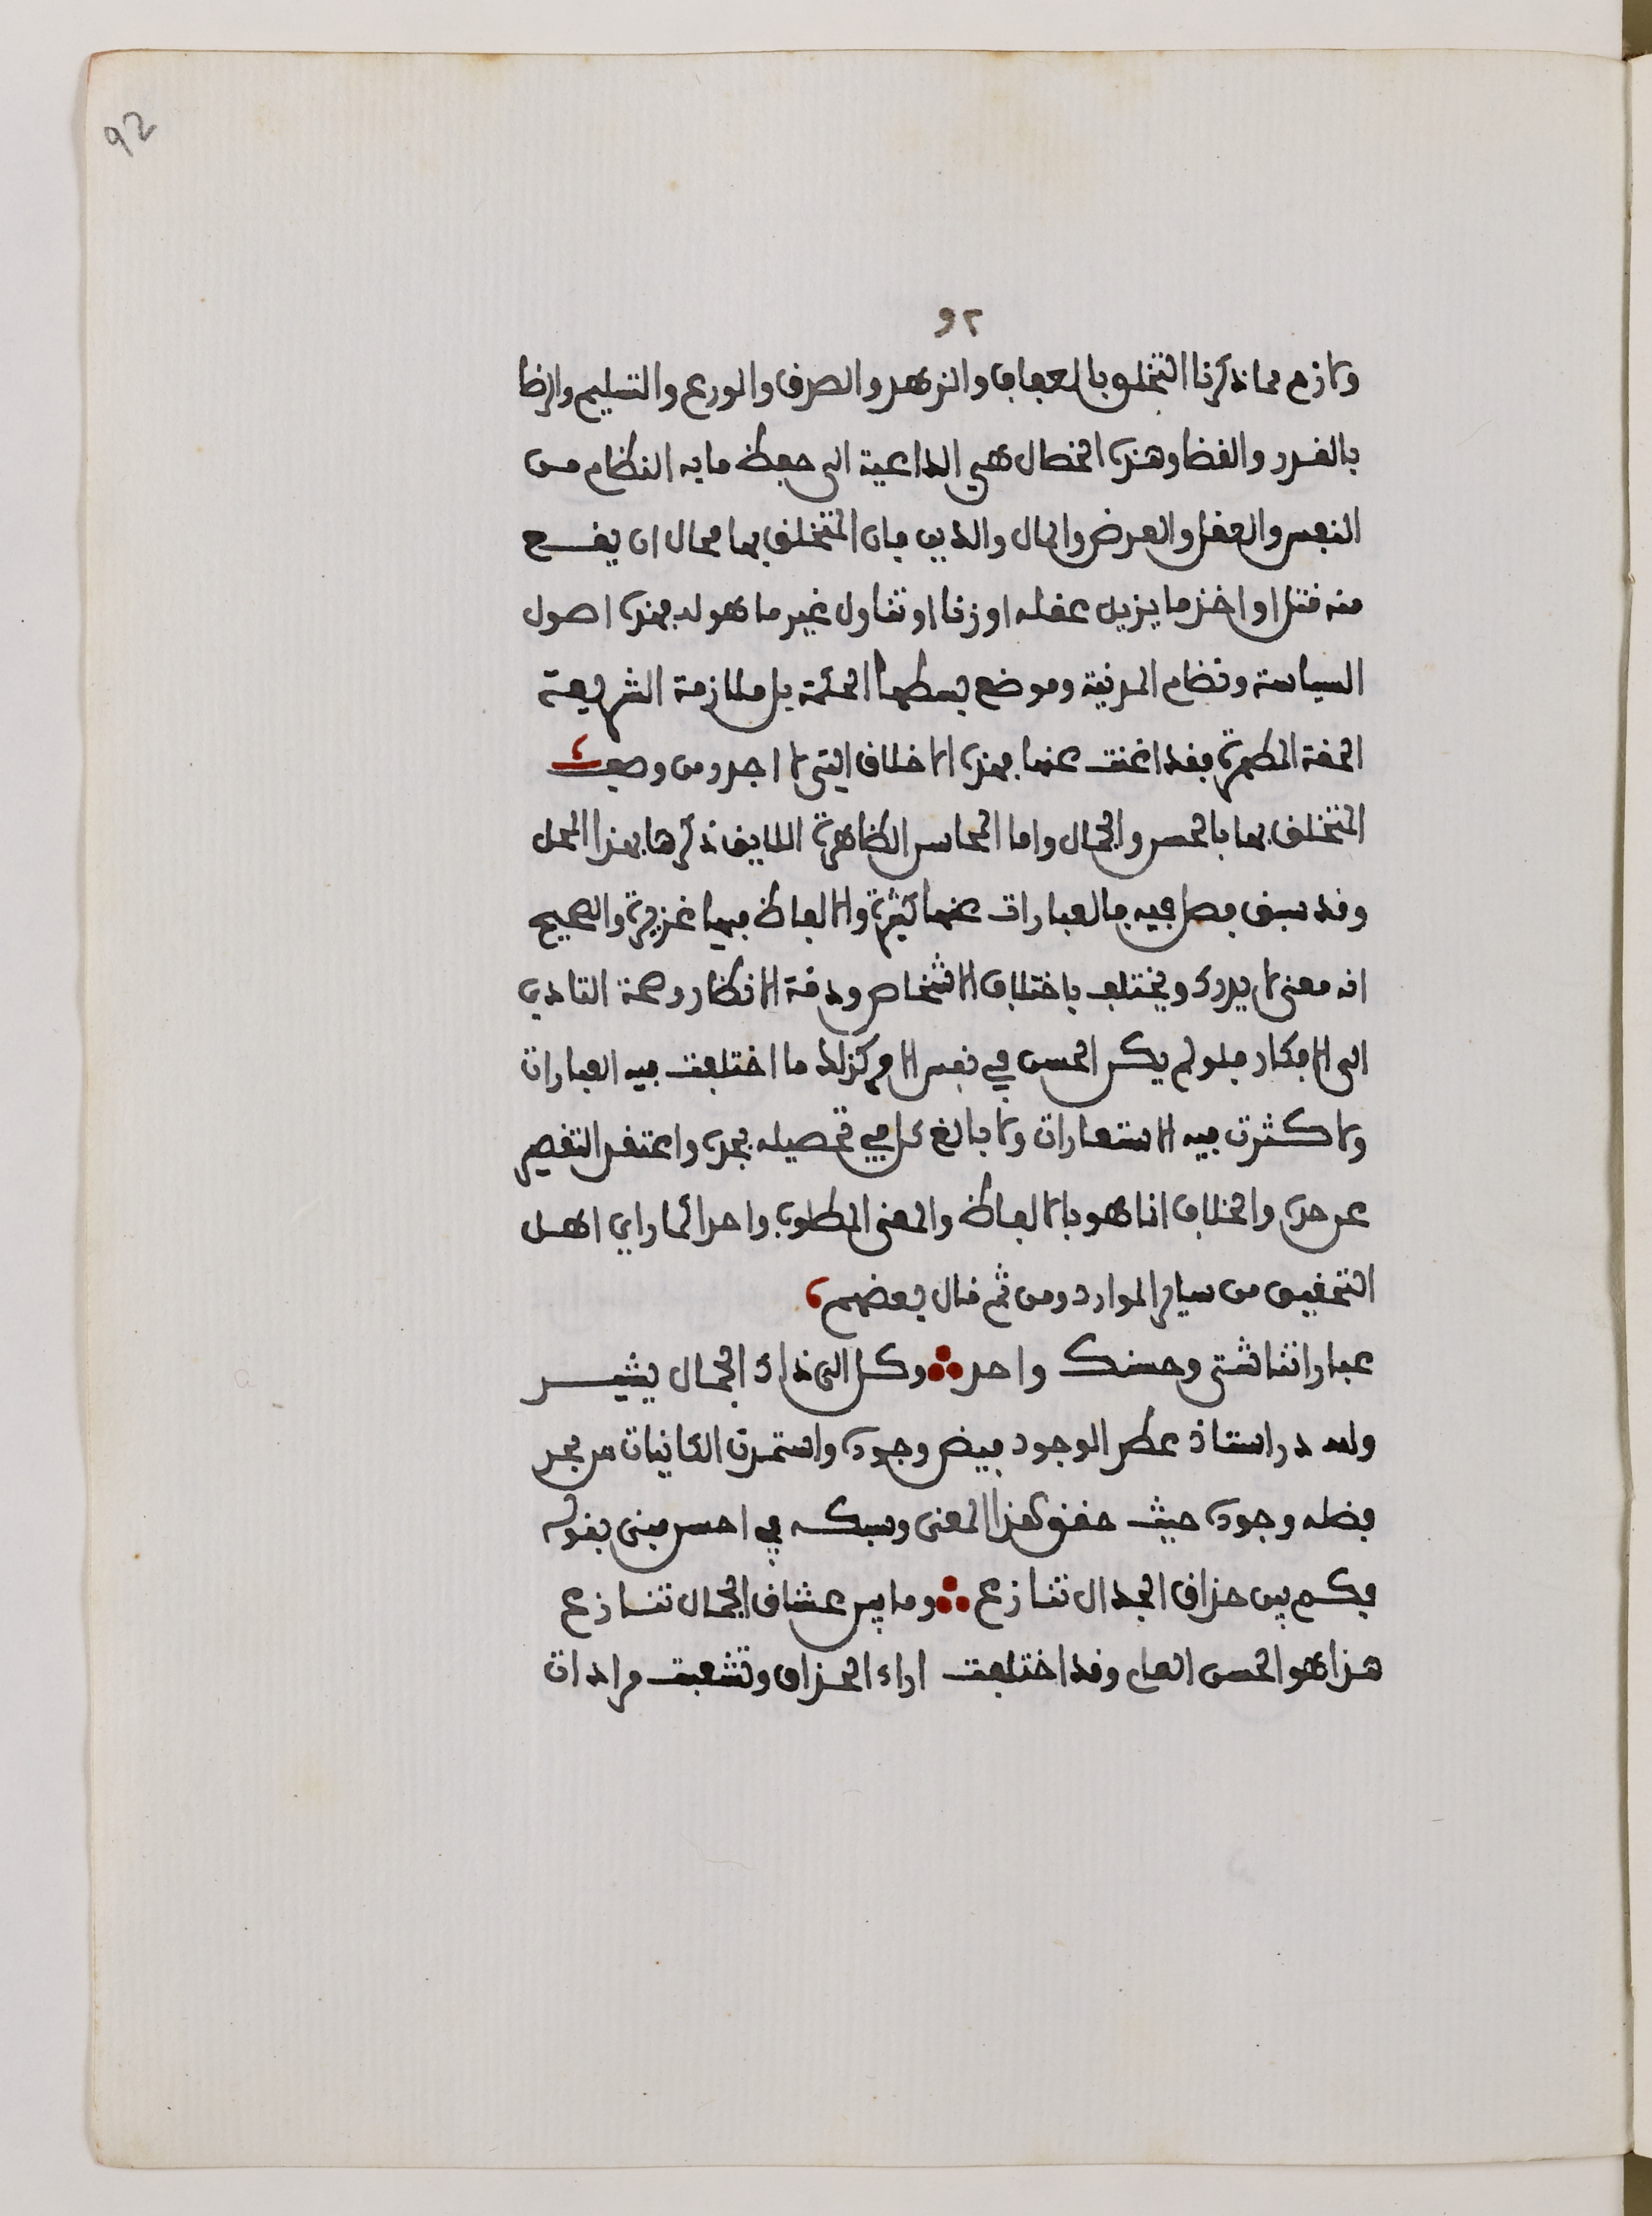 92
٩٢
ولازم مما ذكرنا التخلق بالعفاف والزهد والصدق والورع والتسليم والرضا
بالقدر والقضا وهذه الخصال هي الداعية الى حفظ ما به النظام من
النفس والعقل والعرض والمال والدين فان المتخلق بها محال ان يقع
منه قتل او اخذ ما يزيل عقله او زنا او تناول غير ما هو له فهذه اصول
السياسة ونظام المدنية وموضع بسطها الحكمة بل ملازمة الشريعة
الحقة المطهرة فقد اغنت عنها فهذه الاخلاق التي لا اجد ومن وصف
المتخلق بها بالحسن والجمال واما المحاسن الظاهرة اللايق ذكرها بهذا المحل
وقد سبق فصل فيه فالعبارات عنها كثيرة والالفاظ فيها غزيرة والصحيح
انه معنى لا يدرك ويختلف باختلاف الاشخاص ودقة الانظار وصحة التادي
الى الافكار فلو لم يكن الحسن في نفس الامر كذلك ما اختلفت فيه العبارات
ولا كثرت فيه الاستعارات ولا بالغ كل في تحصيله بجده واعتقد التقصير
عن حده والخلاف انما هو بالالفاظ والمعنى المطلوب واحد كما راي اهل
التحقيق من ساير الموارد ومن ثم قال بعضهم
عباراتنا شتى وحسنك واحد ؞ وكل الى ذاك الجمال يشير
ولله در استاذ عطر الوجود بفيض وجوده واستمدت الكائنات من بحر
فضله وجوده حيث حقق هذا المعنى وسبكه في احسن مبنى بقوله
فكم بين حذاق الجدال تنازع ؞ وما بين عشاق الجمال تنازع
هذا هو الحسن العام وقد اختلفت اراء الحذاق وتشعبت مرادات